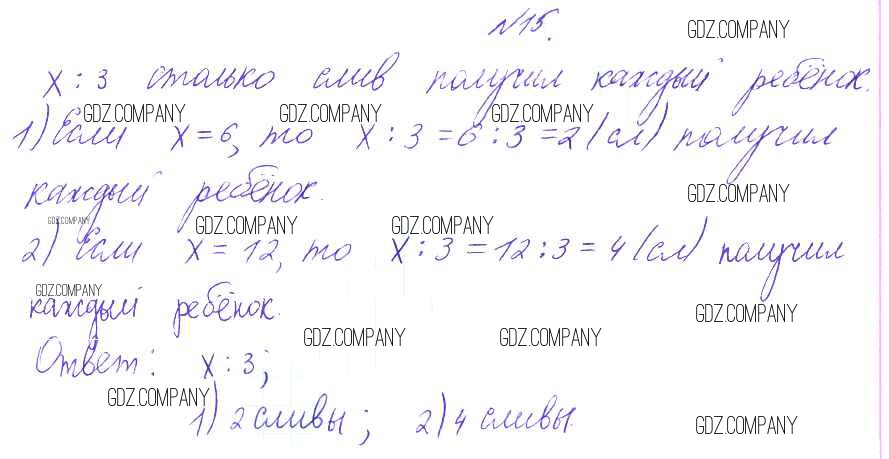 №15. GDZ.COMPANY
x : 3 столько слив получил каждый ребёнок.
GDZ.COMPANY GDZ.COMPANY GDZ.COMPANY
1) Если x = 6, то x : 3 = 6 : 3 = 2 (сл) получил
каждый ребёнок. GDZ.COMPANY
GDZ.COMPANY GDZ.COMPANY GDZ.COMPANY
2) Если x = 12, то x : 3 = 12 : 3 = 4 (сл) получил
GDZ.COMPANY
каждый ребёнок. GDZ.COMPANY
GDZ.COMPANY GDZ.COMPANY
Ответ: x : 3;
GDZ.COMPANY
1) 2 сливы; 2) 4 сливы. GDZ.COMPANY